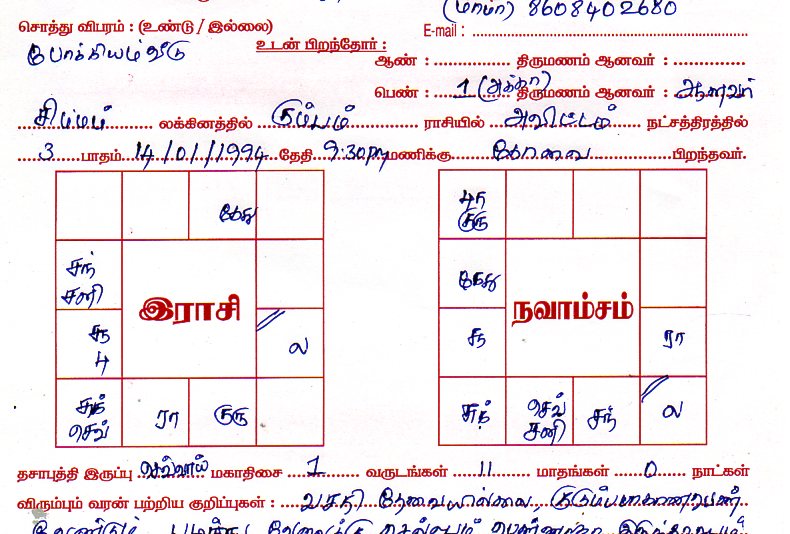 (மாமா) 8608402680
சொத்து விபரம் : (உண்டு / இல்லை)
E-mail :
போக்கியம் வீடு
உடன் பிறந்தோர் :
ஆண் : திருமணம் ஆனவர் :
பெண் : 1 (அக்கா) திருமணம் ஆனவர் : ஆனவர்
சிம்மம் லக்கினத்தில் கும்பம் ராசியில் அவிட்டம் நட்சத்திரத்தில்
3 பாதம் 14/01/1994 தேதி 9:30pm மணிக்கு கோவை பிறந்தவர்.
கேது
சந்
சனி
இராசி
சூ
4
ல
சுக்
செவ்
ரா
குரு
4
குரு
கேது
நவாம்சம்
சூ
ரா
சுக்
செவ்
சனி
சந்
ல
தசாபுத்தி இருப்பு செவ்வாய் மகாதிசை 1 வருடங்கள் 11 மாதங்கள் 0 நாட்கள்
விரும்பும் வரன் பற்றிய குறிப்புகள் : வசதி தேவையில்லை,
வேண்டும்